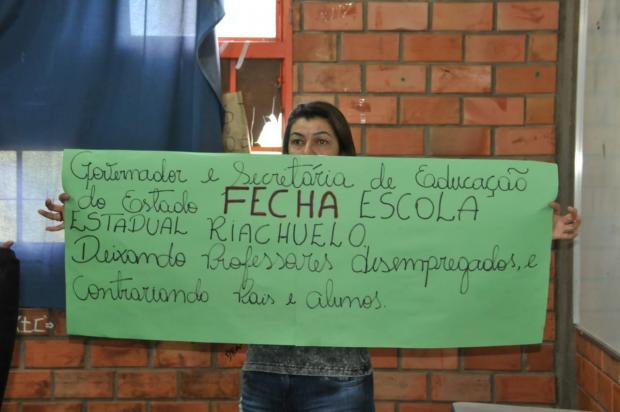 Governador e Secretária de Educação
do Estado FECHA ESCOLA
ESTADUAL RIACHUELO,
Deixando Professores desempregados, e
Contrariando Pais e alunos.